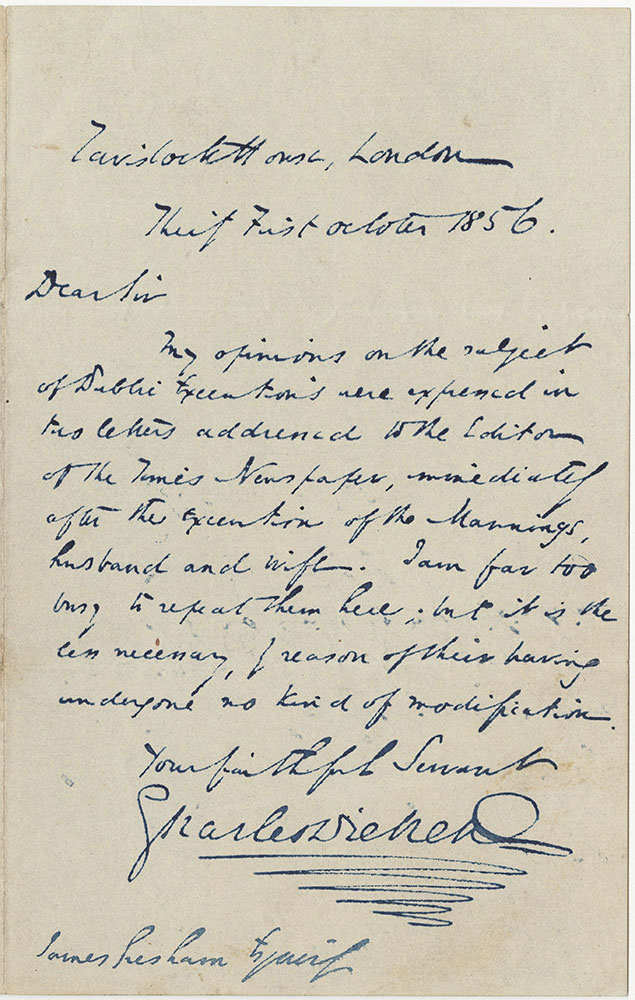 Tavistock House, London
Thirty First October 1856.
Dear Sir
My opinions on the subject
of Public Executions were expressed in
two letters addressed to the Editor
of the Times Newspaper, immediately
after the execution of the Mannings,
husband and wife. I am far too
busy to repeat them here; but it is the
less necessary, by reason of their having
undergone no kind of modification.
Your faithful Servant
Charles Dickens
James Esquire